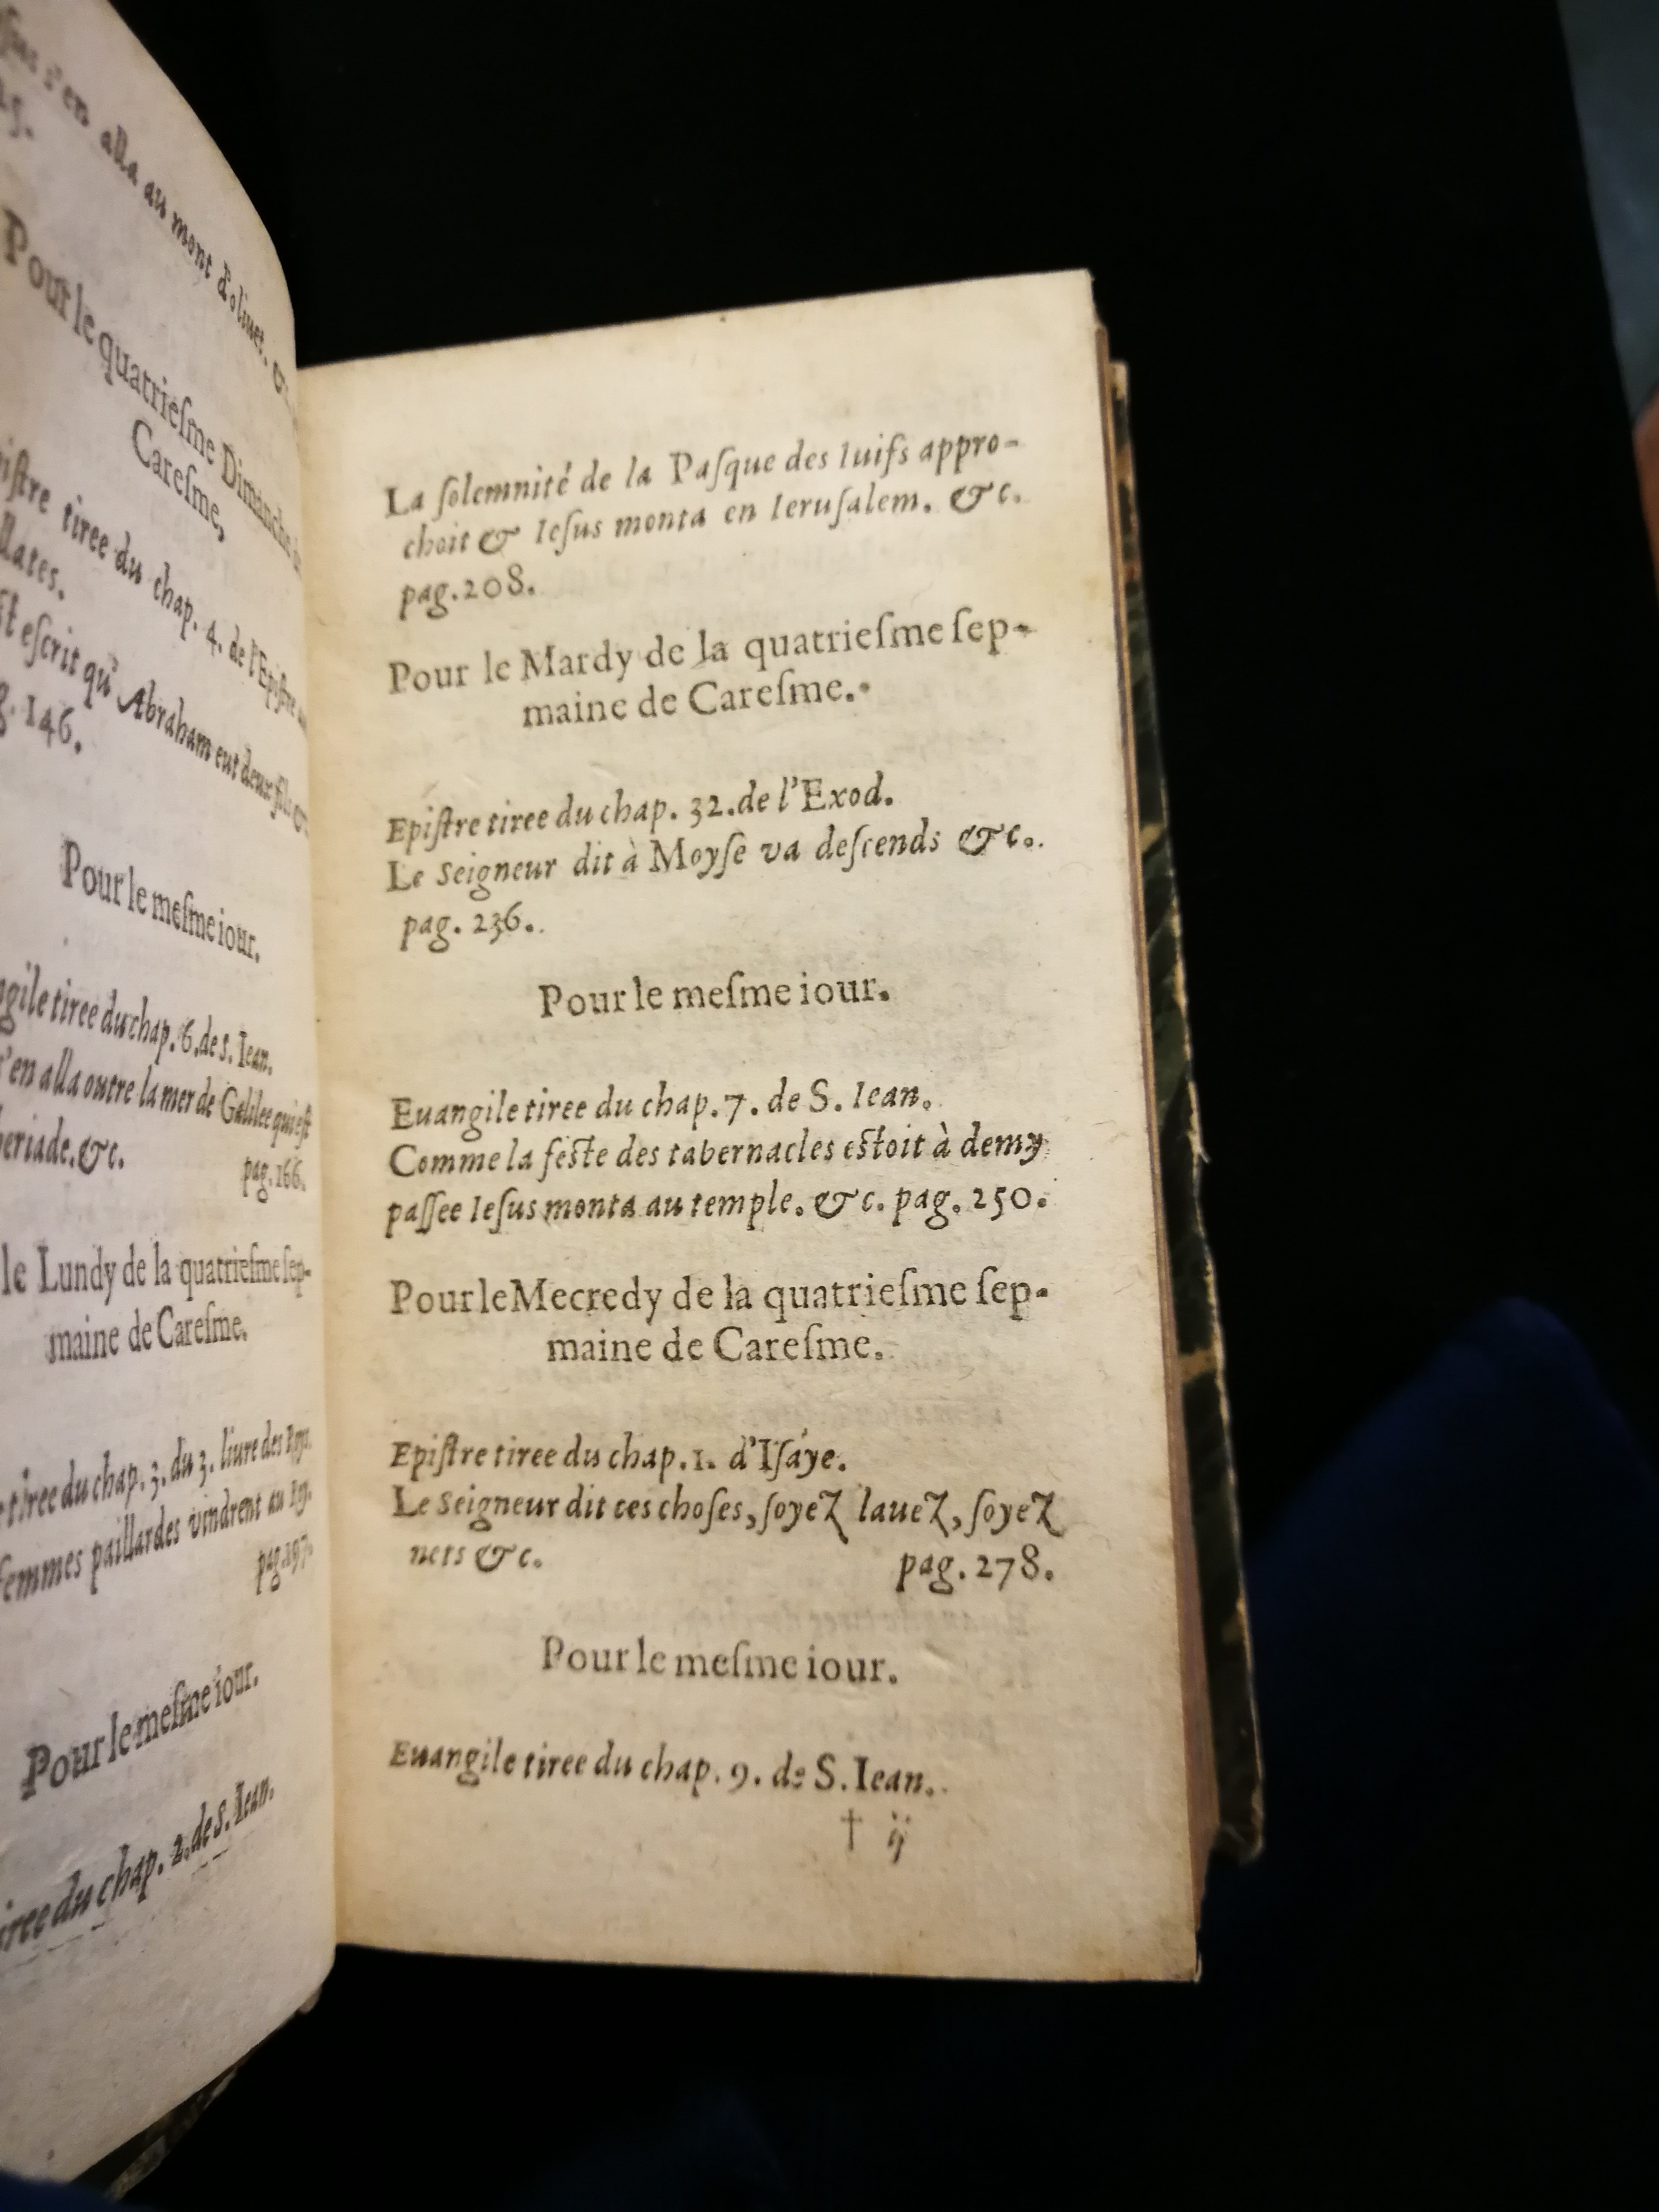 s'en alla au mont d'oliuet. &
Pour le quatriesme Dimanche
Caresme,
tiree du chap. 4. de l'Epistre
escrit qu' Abraham eut deux fils &
146.
Pour le mesme iour.
tiree du chap. 6. de s. Iean.
s'en alla outre la mer de Galilee qui est
&c.
pag. 166.
le Lundy de la quatriesme sep-
maine de Caresme.
tiree du chap. 3. du 3. liure des Roys.
femmes paillardes vindrent au
pag. 197.
Pour le mesme iour.
du chap. 2. de S. Iean.
La solemnité de la Pasque des Iuifs appro-
choit & Iesus monta en Ierusalem. &c.
pag. 208.
Pour le Mardy de la quatriesme sep-
maine de Caresme.
Epistre tiree du chap. 32. de l'Exod.
Le Seigneur dit à Moyse va descends &c.
pag. 236.
Pour le mesme iour.
Euangile tiree du chap. 7. de S. Iean.
Comme la feste des tabernacles estoit à demy
passee Iesus monta au temple. &c. pag. 250.
Pour le Mecredy de la quatriesme sep-
maine de Caresme.
Epistre tiree du chap. 1. d'Isaye.
Le Seigneur dit ces choses, soyez lauez, soyez
nets &c. pag. 278.
Pour le mesme iour.
Euangile tiree du chap. 9. de S. Iean.
† ij